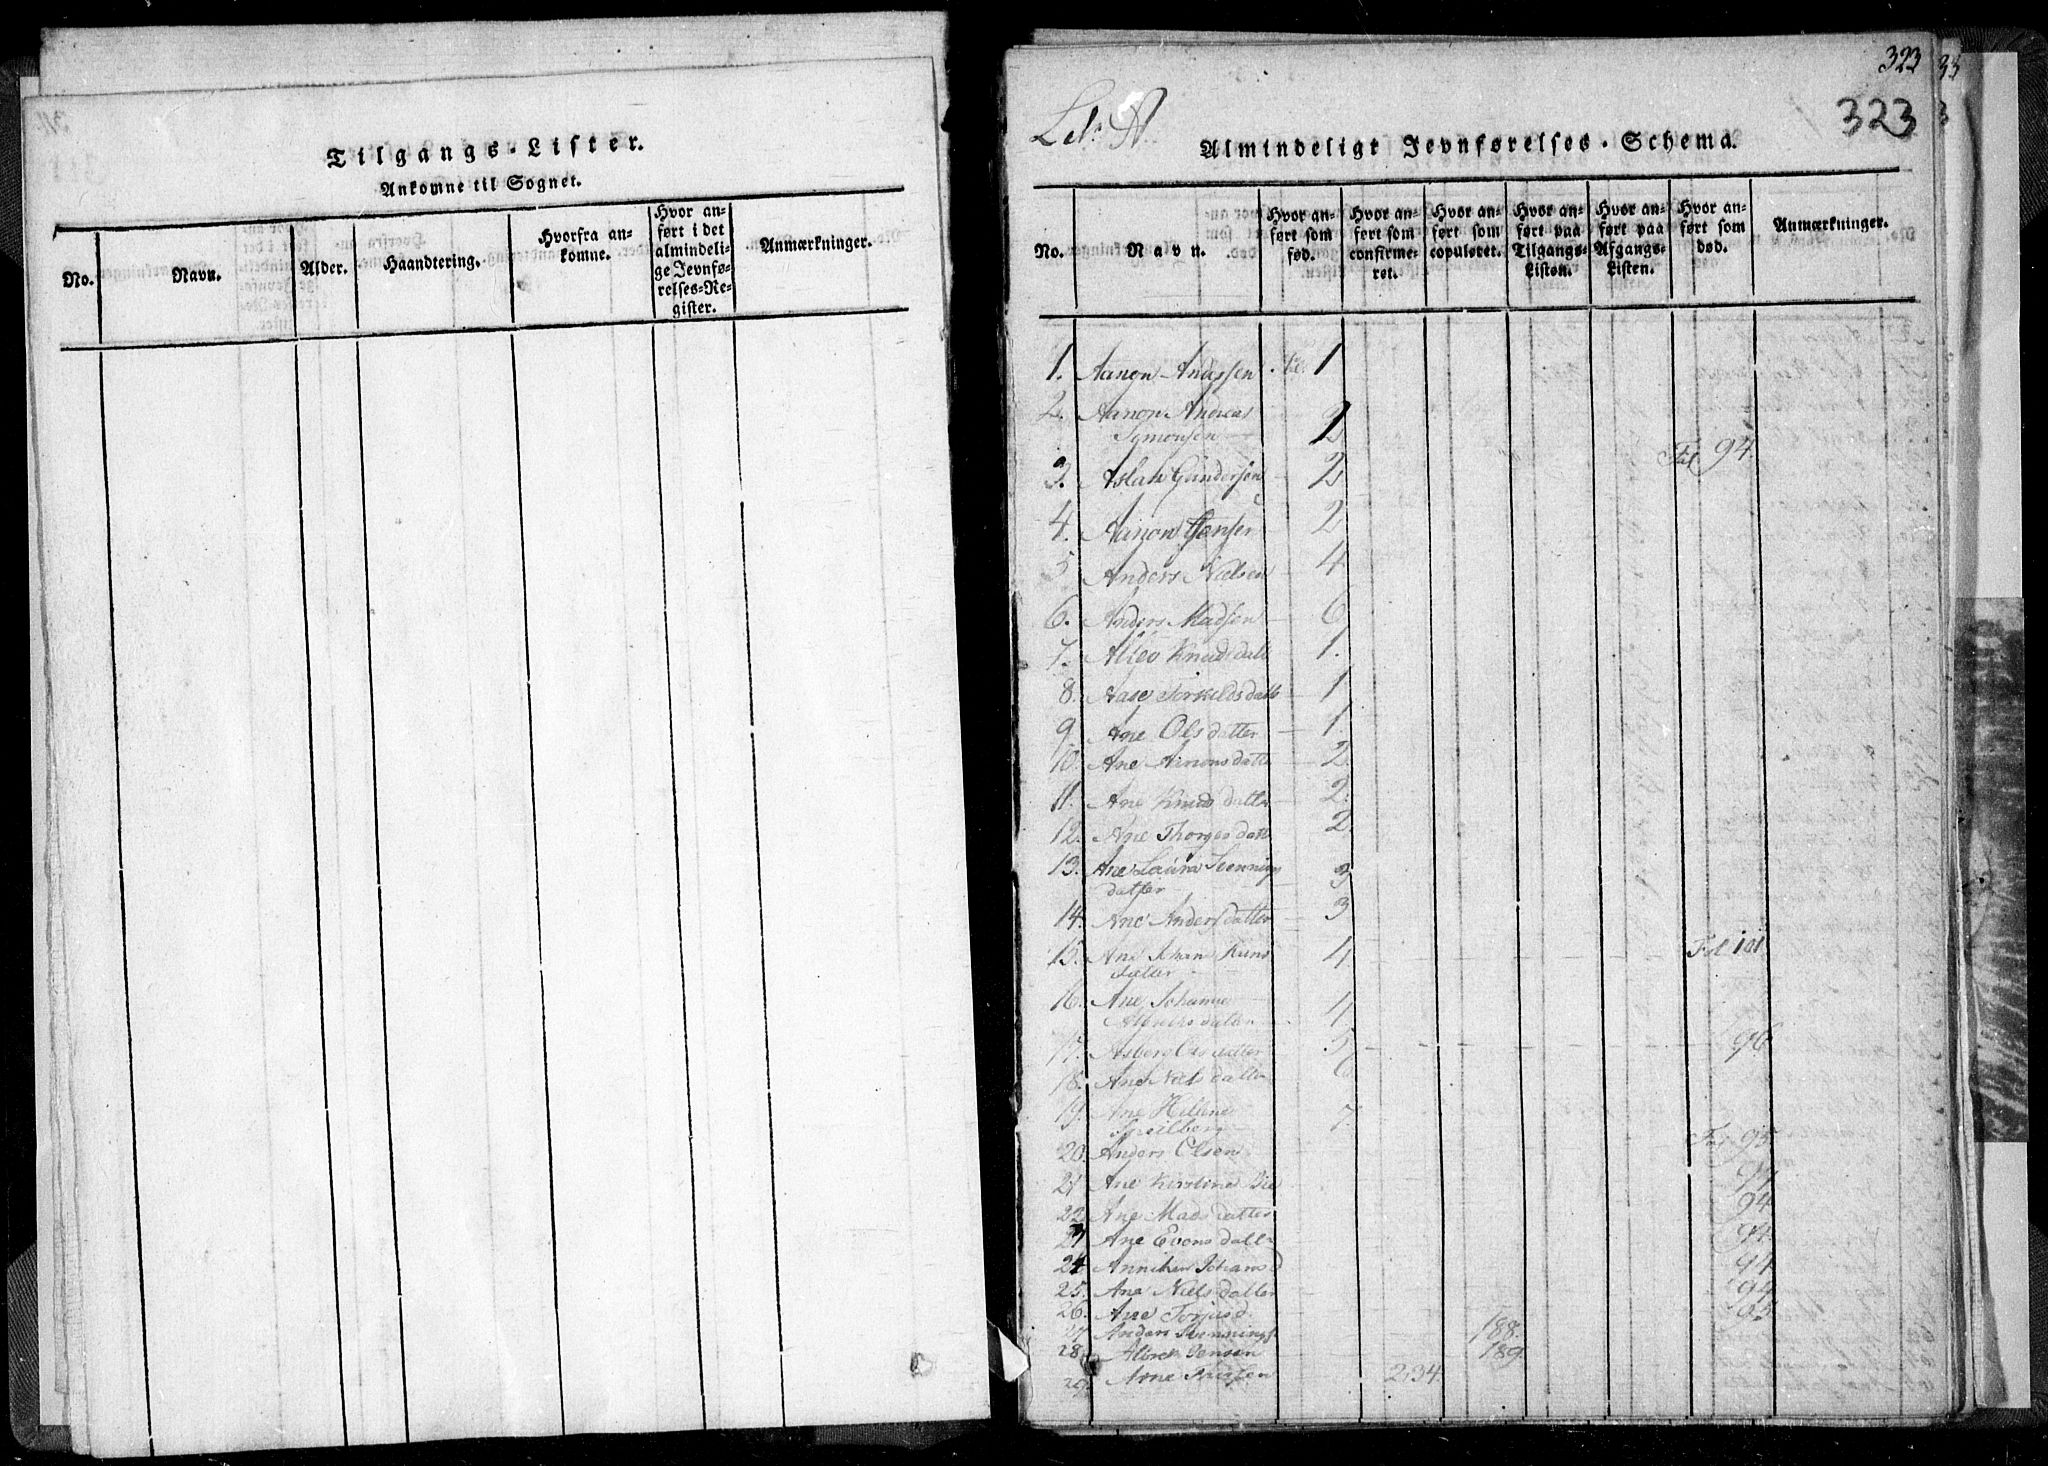 Tilgangs-Lister.
Ankomne til Sognet.
No.
Navn.
Alder.
Haandtering.
Hvorfra an-
komne.
Hvor an-
ført i det
almindeli-
ge Jevnfø-
relses-Re-
gister.
Anmærkninger.
323
323
Litr A.
Almindeligt Jevnførelses-Schema.
No.
Navn.
Hvor an-
ført som
fød.
Hvor an-
ført som
confirme-
ret.
Hvor an-
ført som
copuleret.
Hvor an-
ført paa
Tilgangs-
Listen.
Hvor an-
ført paa
Afgangs-
Listen.
Hvor an-
ført som
død.
Anmærkninger.
1. Aanon Anderssen 1
2. Aanon Andreas
Symonsen
3. Aslak Gundersen 2 Fol 94.
4. Aanon Hansen 2
5 Anders Nielsen 4
6. Anders Madsen 6
7. Knudsdatt 1.
8. Aase Torkildsdatt 1
9. Ane Olsdatter 1.
10. Ane Aanonsdatter 2
11. Ane Knudsdatter 2.
12. Ane datt 2
13. Ane Laura Hennings
datter 3
14. Ane Andersdatter 3
15. Ane Johanne
datter 4. Fol 101
16. Ane Johanne
datter 4.
17. Asberg Olsdatter 5 96
18. Ane Nielsdatter 6
19. Ane Hellene
Speilberg 7.
20. Anders Olsen Fol 95
21 Ane Kirstine 94
22 Ane Madsdatter 94
23 Ane Evensdatter 94
24 Anniken Johansd 94
25. Ane Nielsdatter 94
26. Ane Torjusd 95
27 Anders Henningss 188.
28. Albret Jensen 189
29 Arne 234